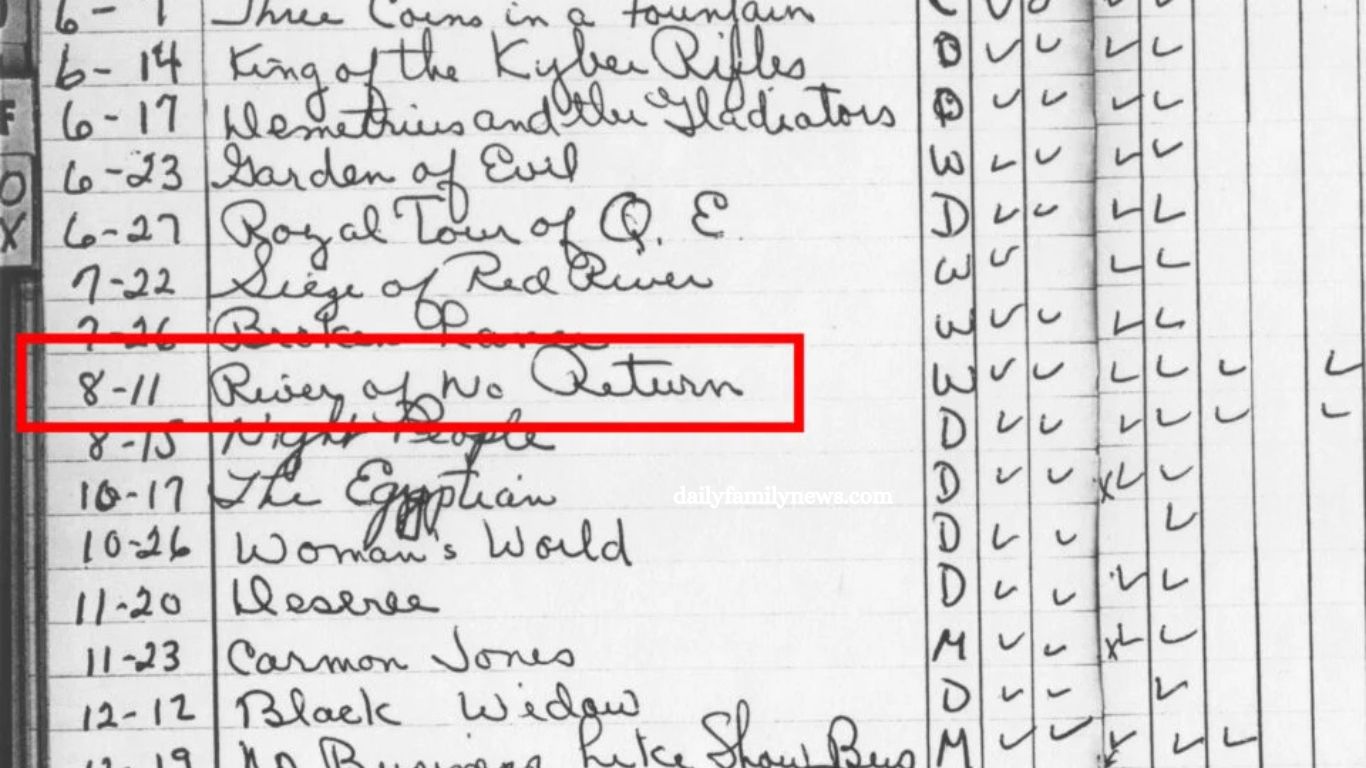 6-7 Three Coins in a Fountain C
6-14 King of the Kyber Rifles D
6-17 Demetrius and the Gladiators D
F
6-23 Garden of Evil W
O
6-27 Royal Tour of Q. E. D
X
7-22 Siege of Red River W
7-26 Broken Lance W
8-11 River of No Return W
8-15 Night People D
10-17 The Egyptian D
dailyfamilynews.com
10-26 Woman's World D
11-20 Desiree D
11-23 Carmon Jones M
12-12 Black Widow D
12-19 No Business Like Show Bus M